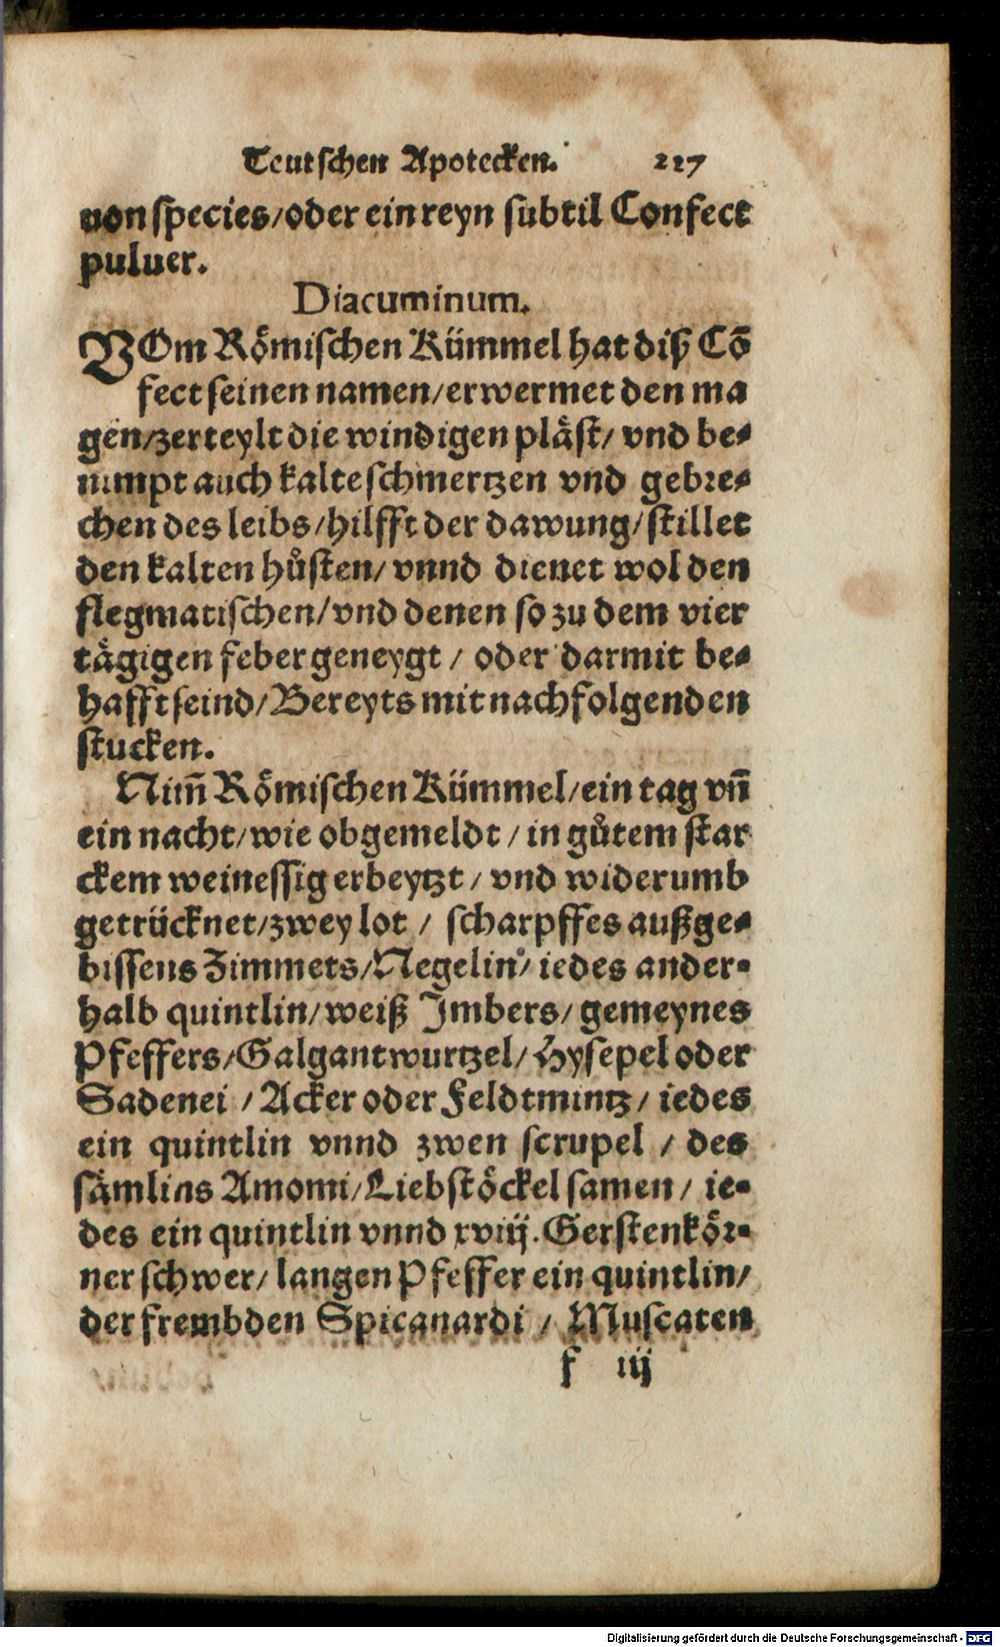 Teutschen Apotecken. 227
von species/oder ein reyn subtil Confect
puluer.
Diacuminum.
VOm Römischen Kümmel hat diß Cõ
fect seinen namen/erwermet den ma
gen/zerteylt die windigen pläst/ vnd be-
nimpt auch kalte schmertzen vnd gebre-
chen des leibs/hilfft der dawung/stillet
den kalten hůsten/ vnnd dienet wol den
flegmatischen/vnd denen so zu dem vier
tägigen feber geneygt / oder darmit be-
hafft seind/Bereyts mit nachfolgenden
stucken.
Nim̃ Römischen Kümmel/ein tag vñ
ein nacht/wie obgemeldt / in gůtem star
ckem weinessig erbeytzt / vnd widerumb
getrücknet/zwey lot / scharpffes außge-
bissens Zimmets/Negelin/ iedes ander-
halb quintlin/weiß Imbers/ gemeynes
Pfeffers/Galgantwurtzel/Hysepel oder
Sadenei / Acker oder Feldtmintz/ iedes
ein quintlin vnnd zwen scrupel / des
sämlins Amomi/Liebstöckel samen/ ie-
des ein quintlin vnnd xviij. Gerstenkör-
ner schwer/ langen Pfeffer ein quintlin/
der frembden Spicanardi / Muscaten
f iij
Digitalisierung gefördert durch die Deutsche Forschungsgemeinschaft - DFG